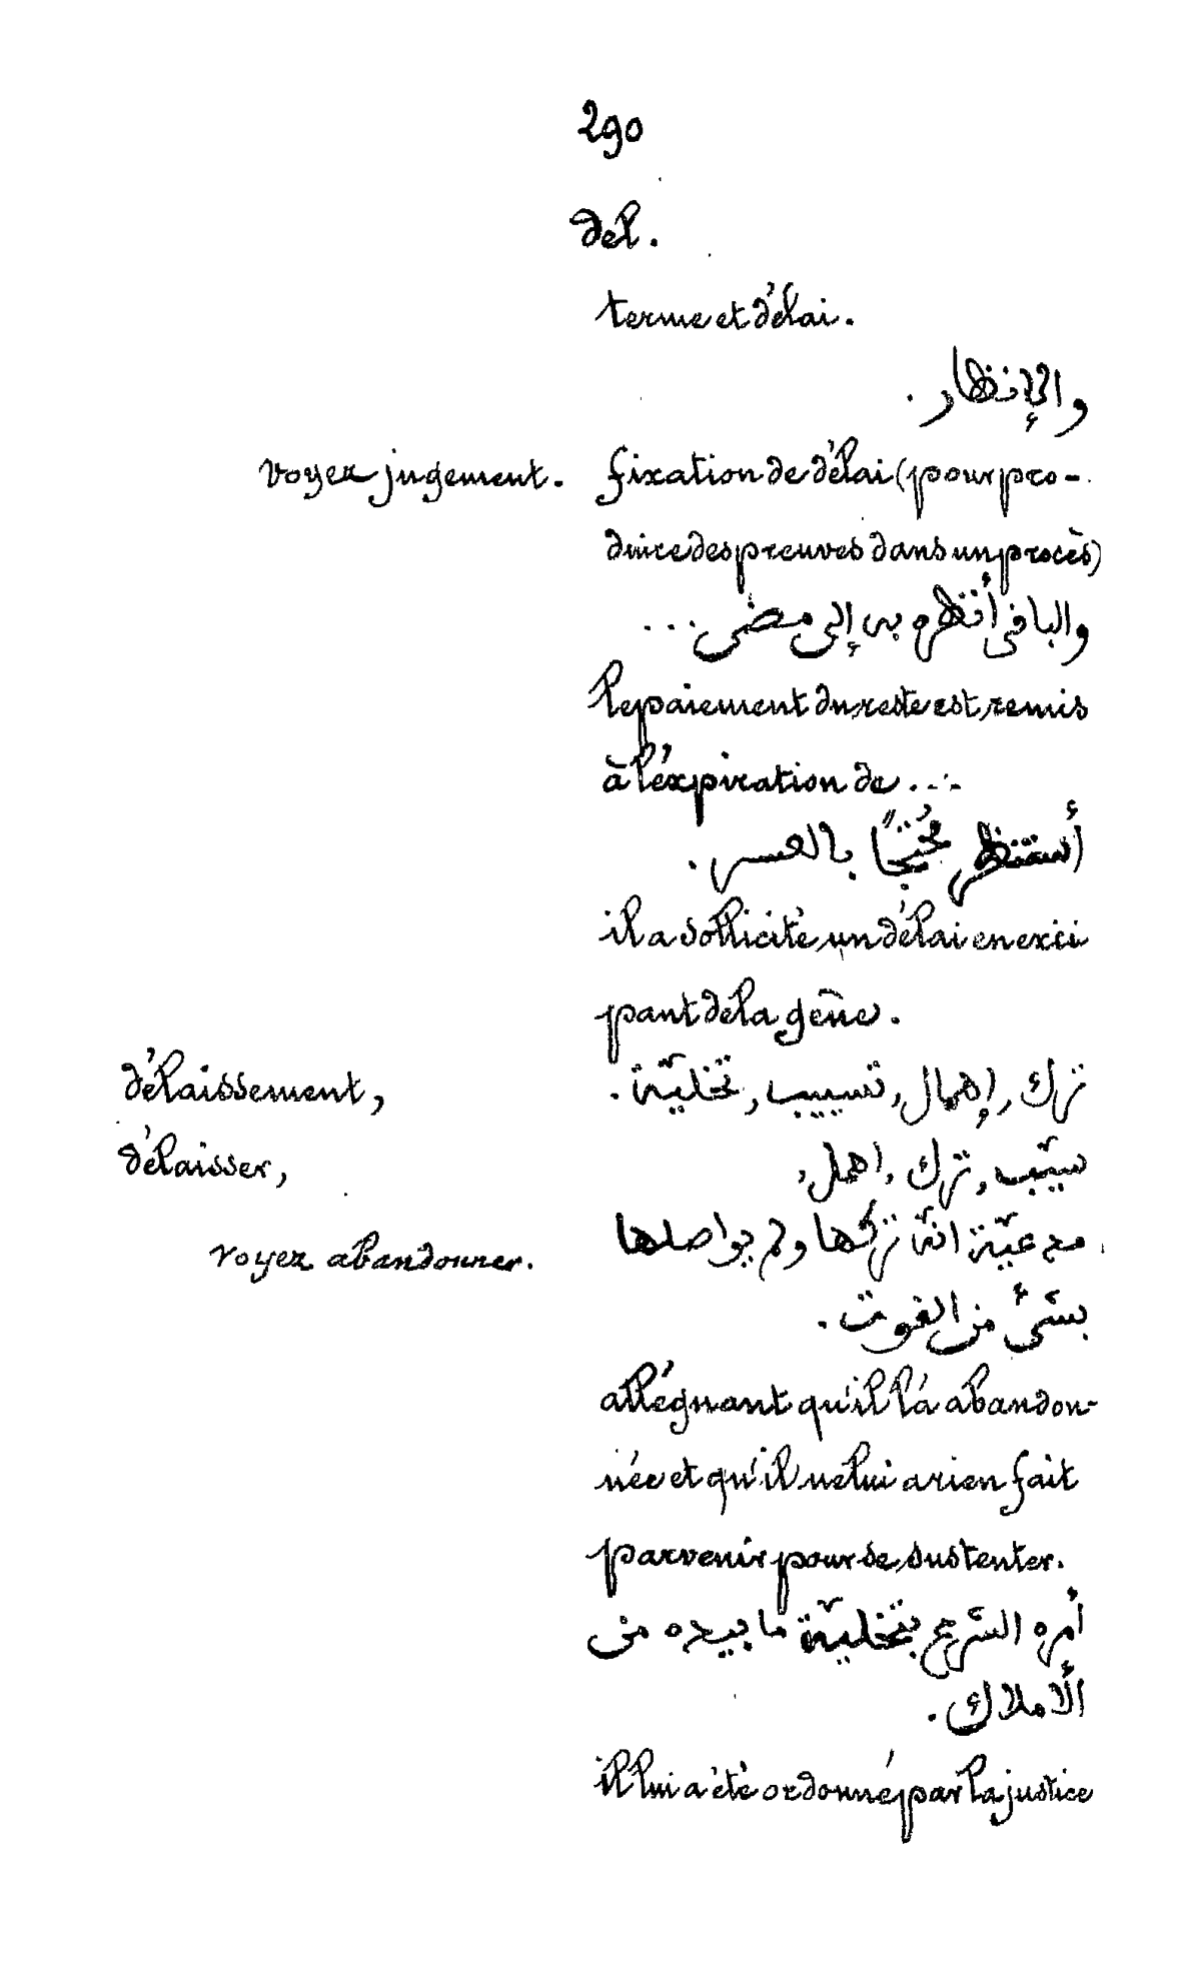 290
del.
terme et délai.
والإنظار.
voyez jugement. fixation de délai (pour pro-
duire des preuves dans un procès)
والباقى أنظره به إلى مضى ...
le paiement du reste est remis
à l'éxpiration de ....
أستنظر مُحْتِجًّا بالعسر.
il a sollicité un délai en exci
pant de la gêne.
délaissement, ترك, إهمال, تسييب, تخليّة.
délaisser, سيّب, ترك, اهمل,
voyez abandonner. مدعيّة انّه تركها ولم يواصلها
بشىْء من القوت.
alléguant qu'il l'a abandon-
née et qu'il ne lui a rien fait
parvenir pour se sustenter.
أمره الشرع بتخليّة ما بيده من
الأملاك.
il lui a été ordonné par la justice